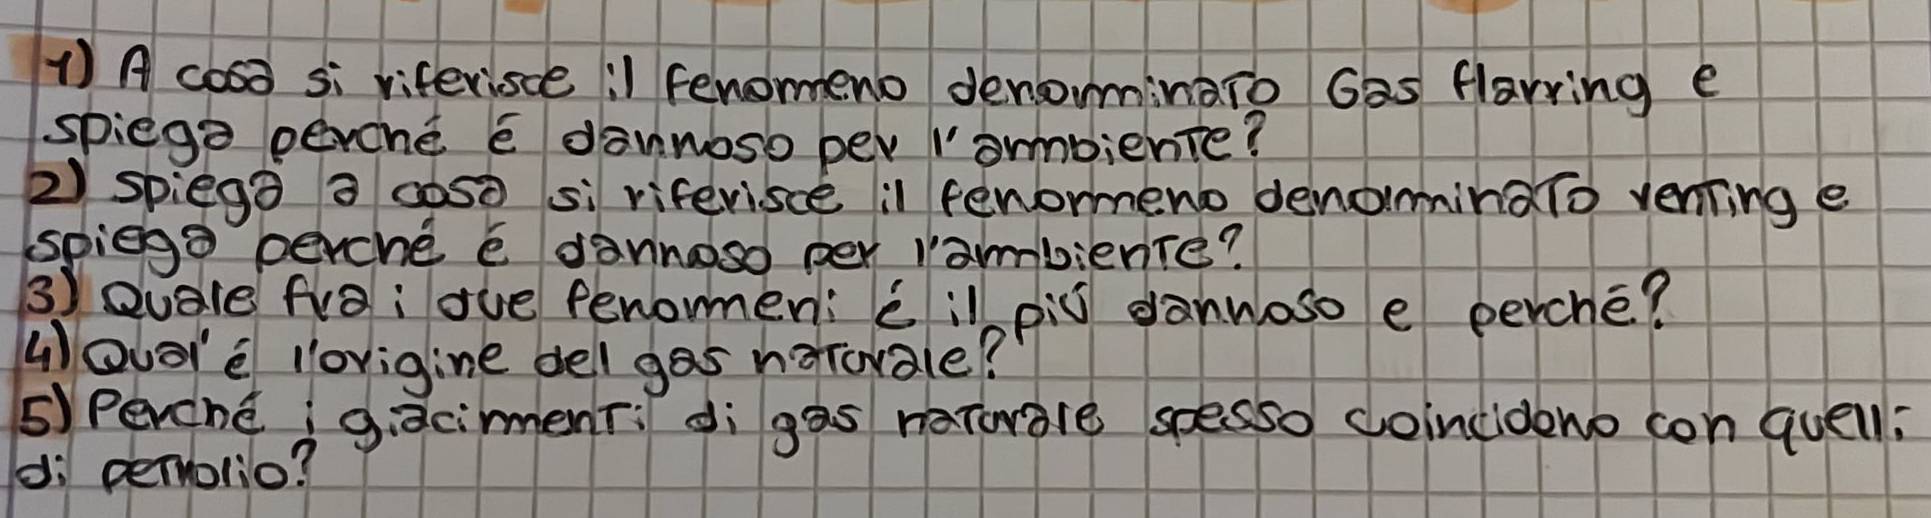 1) A cosa si riferisce il fenomeno denominato Gas flarring e
spiega perché é dannoso per l'ambiente?
2) spiega a cosa si riferisce il fenomeno denominato venting e
spiega perché é dannoso per l'ambiente?
3) Quale fra i due fenomeni é il più dannoso e perché?
4) Qual'é l'origine del gas naturale?
5) Perché i giacimenti di gas naturale spesso coincidono con quelli
di petrolio?